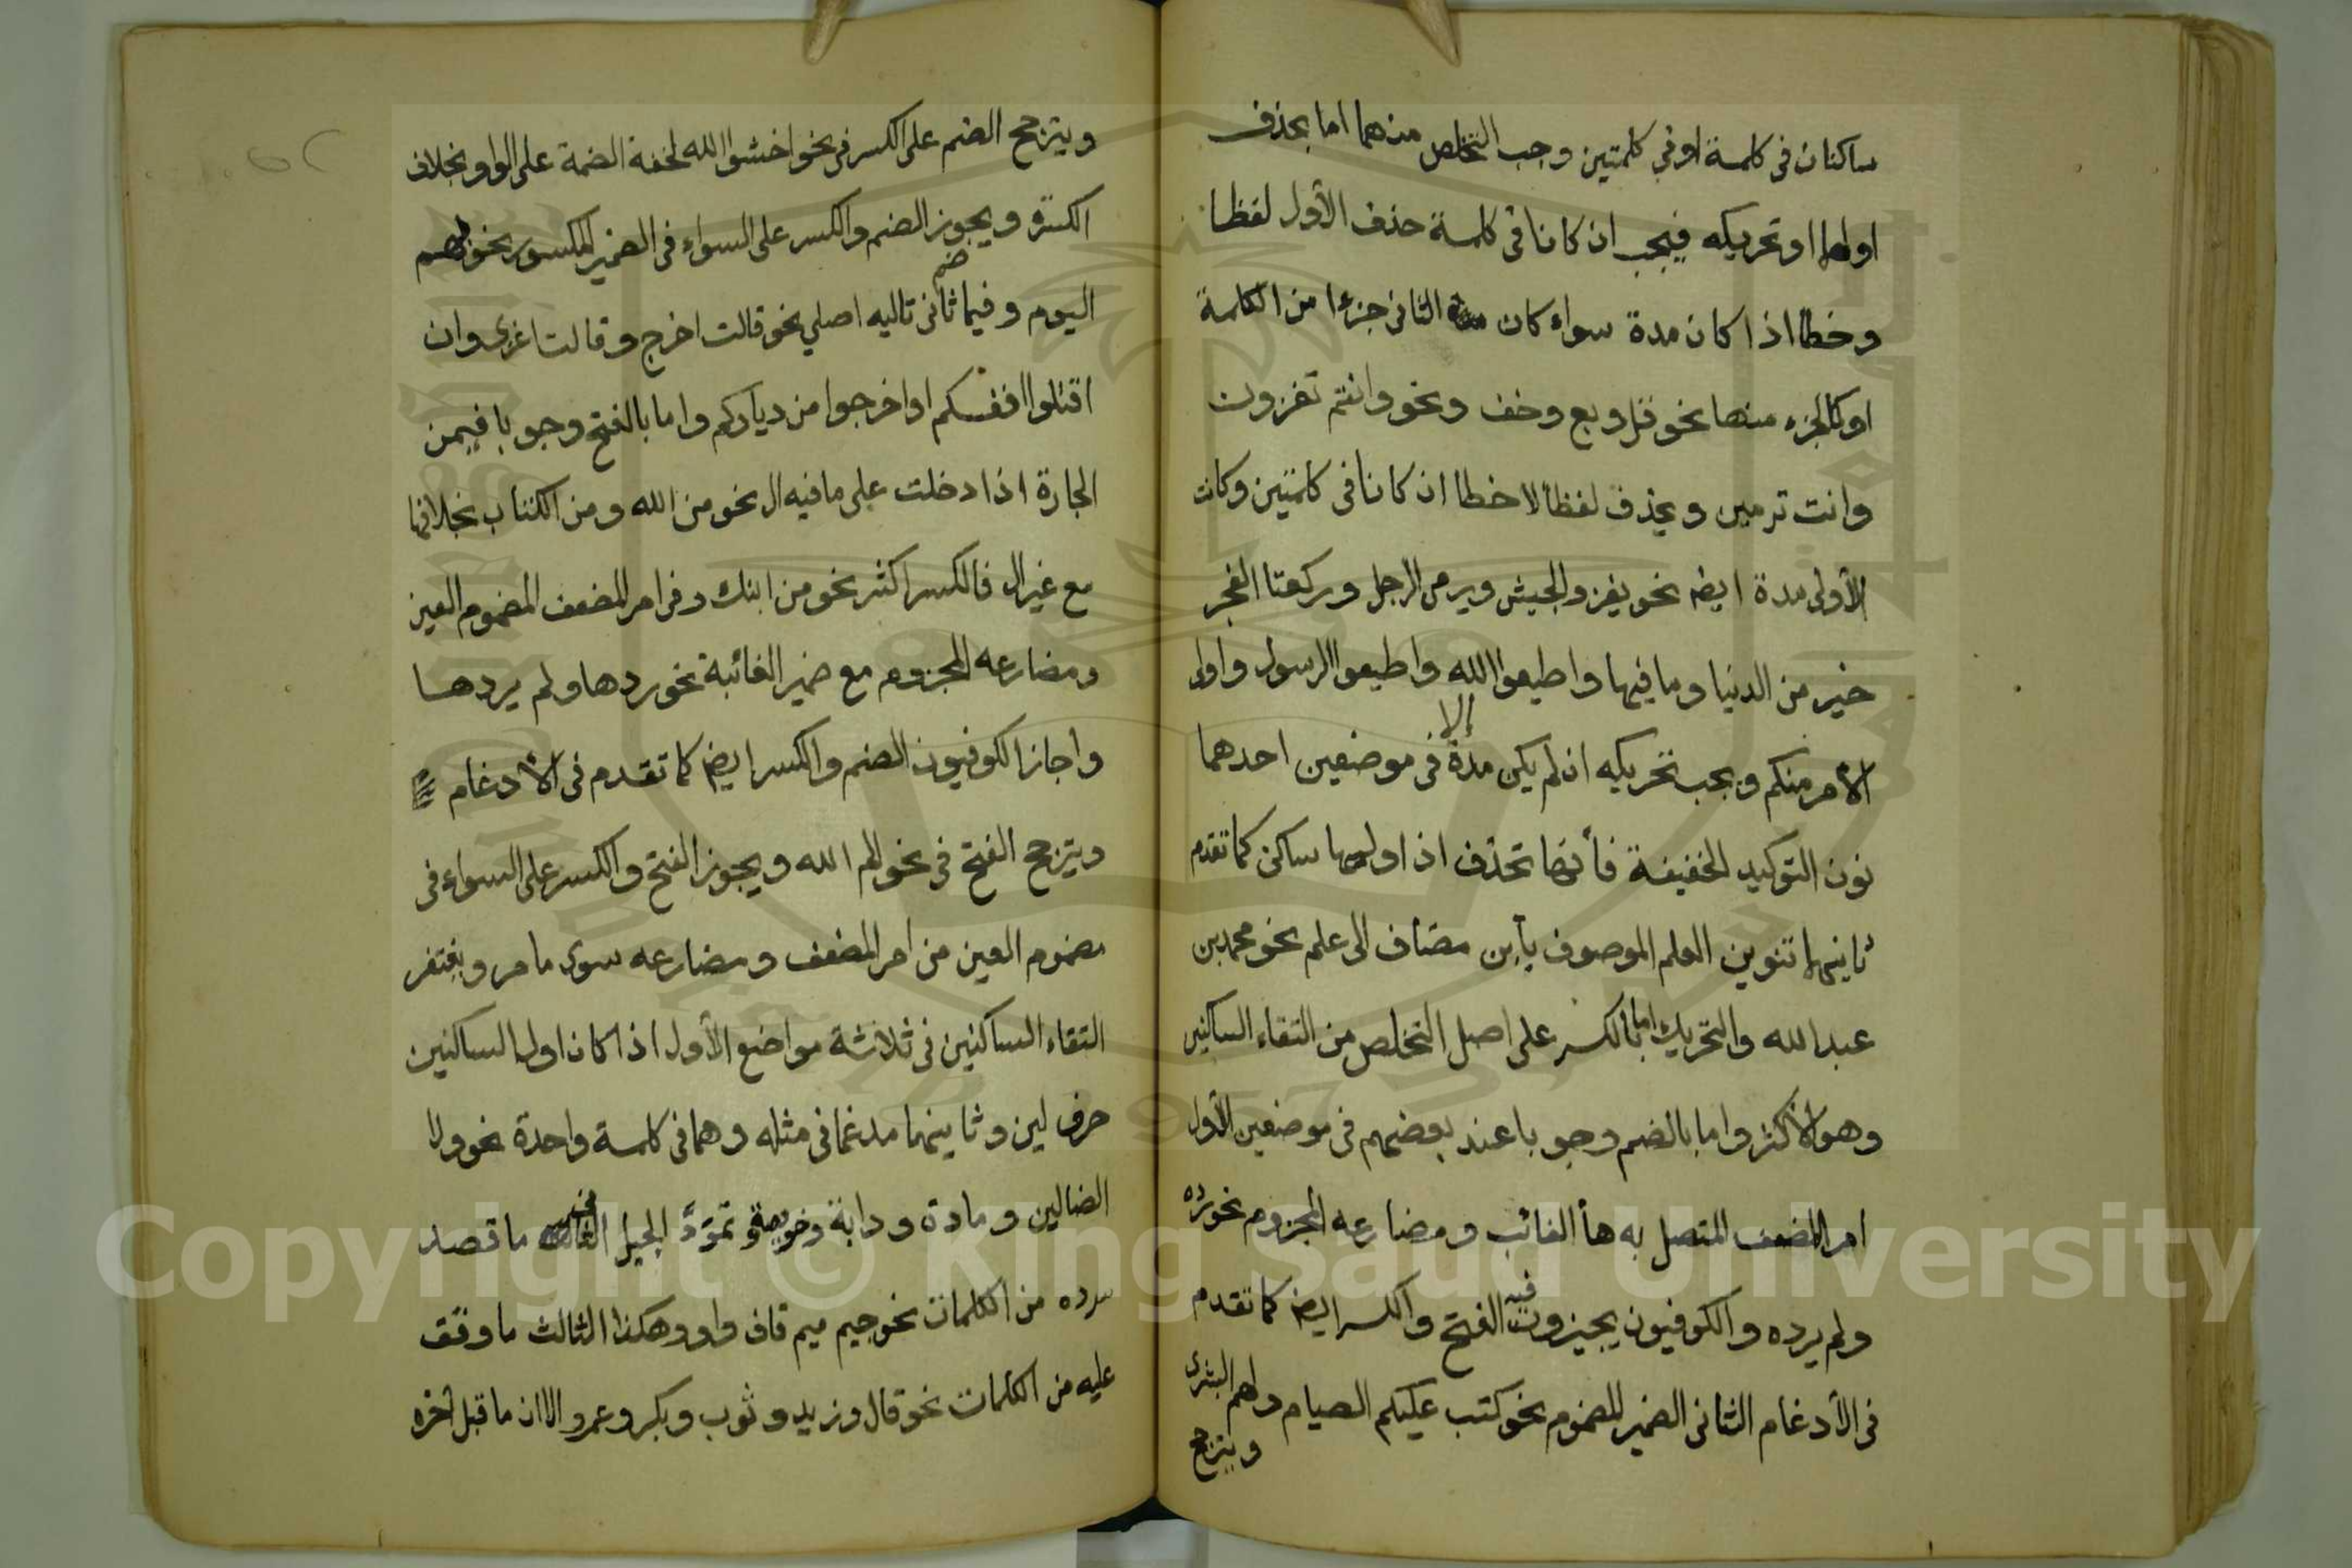 ساكنان في كلمة او في كلمتين وجب التخلص منهما اما بحذف
اولهما او تحريكه فيجب ان كانا في كلمة حذف الأول لفظا
وخطا اذا كان مدة سواء كان الثاني جزءا من الكلمة
او كالجزء منها نحو قل وبع وخف ونحو وانتم تغزون
وانت ترمين ويحذف لفظا لا خطا ان كانا في كلمتين وكانت
الأولى مدة ايضا نحو يغزو الجيش ويرمى الرجل وركعتا الفجر
خير من الدنيا وما فيها واطيعوا الله واطيعوا الرسول واولى
الأمر منكم ويجب تحريكه ان لم يكن مدة إلا في موضعين احدهما
نون التوكيد الخفيفة فأنها تحذف اذا وليها ساكن كما تقدم
ثانيهما تنوين العلم الموصوف بأبن مضاف الى علم نحو محمد بن
عبد الله والتحريك اما بالكسر على اصل التخلص من التقاء الساكنين
وهو الأكثر واما بالضم وجوبا عند بعضهم في موضعين الأول
امر المضعف المتصل به هأ الغائب ومضارعه المجزوم نحو رده
ولم يرده والكوفيون يجيزون فيه الفتح والكسر ايضا كما تقدم
في الأدغام الثاني الضمير المضموم نحو كتب عليكم الصيام ولهم البشرى
ويترجح
ويترجح الضم على الكسر في نحو اخشوا الله لخفة الضمة على الواو بخلاف
الكسرة ويجوز الضم والكسر على السواء في الضمير المكسور نحو بهم
اليوم وفيما ضم ثاني تاليه اصلي نحو قالت اخرج وقالت اغزى وان
اقتلوا انفسكم او اخرجوا من دياركم واما بالفتح وجوبا في من
الجارة اذا دخلت على ما فيه ال نحو من الله ومن الكتاب بخلافها
مع غير ال فالكسر اكثر نحو من ابنك وفي امر المضعف المضموم العين
ومضارعه المجزوم مع ضمير الغائبة نحو ردها ولم يردها
واجاز الكوفيون الضم والكسر ايضا كما تقدم في الأدغام
ويترجح الفتح في نحو الم الله ويجوز الفتح والكسر على السواء في
مضموم العين من امر المضعف ومضارعه سوى ما مر ويغتفر
التقاء الساكنين في ثلاثة مواضع الأول اذا كان اول الساكنين
حرف لين وثانيهما مدغما في مثله وهما في كلمة واحدة نحو ولا
الضالين ومادة ودابة وخويصة وتمود الحبل الثاني ما قصد
سرده من الكلمات نحو جيم ميم قاف واو وهكذا الثالث ما وقف
عليه من الكلمات نحو قال وزيد وثوب وبكر وعمرو الا ان ما قبل آخره
Copyright © King Saud University